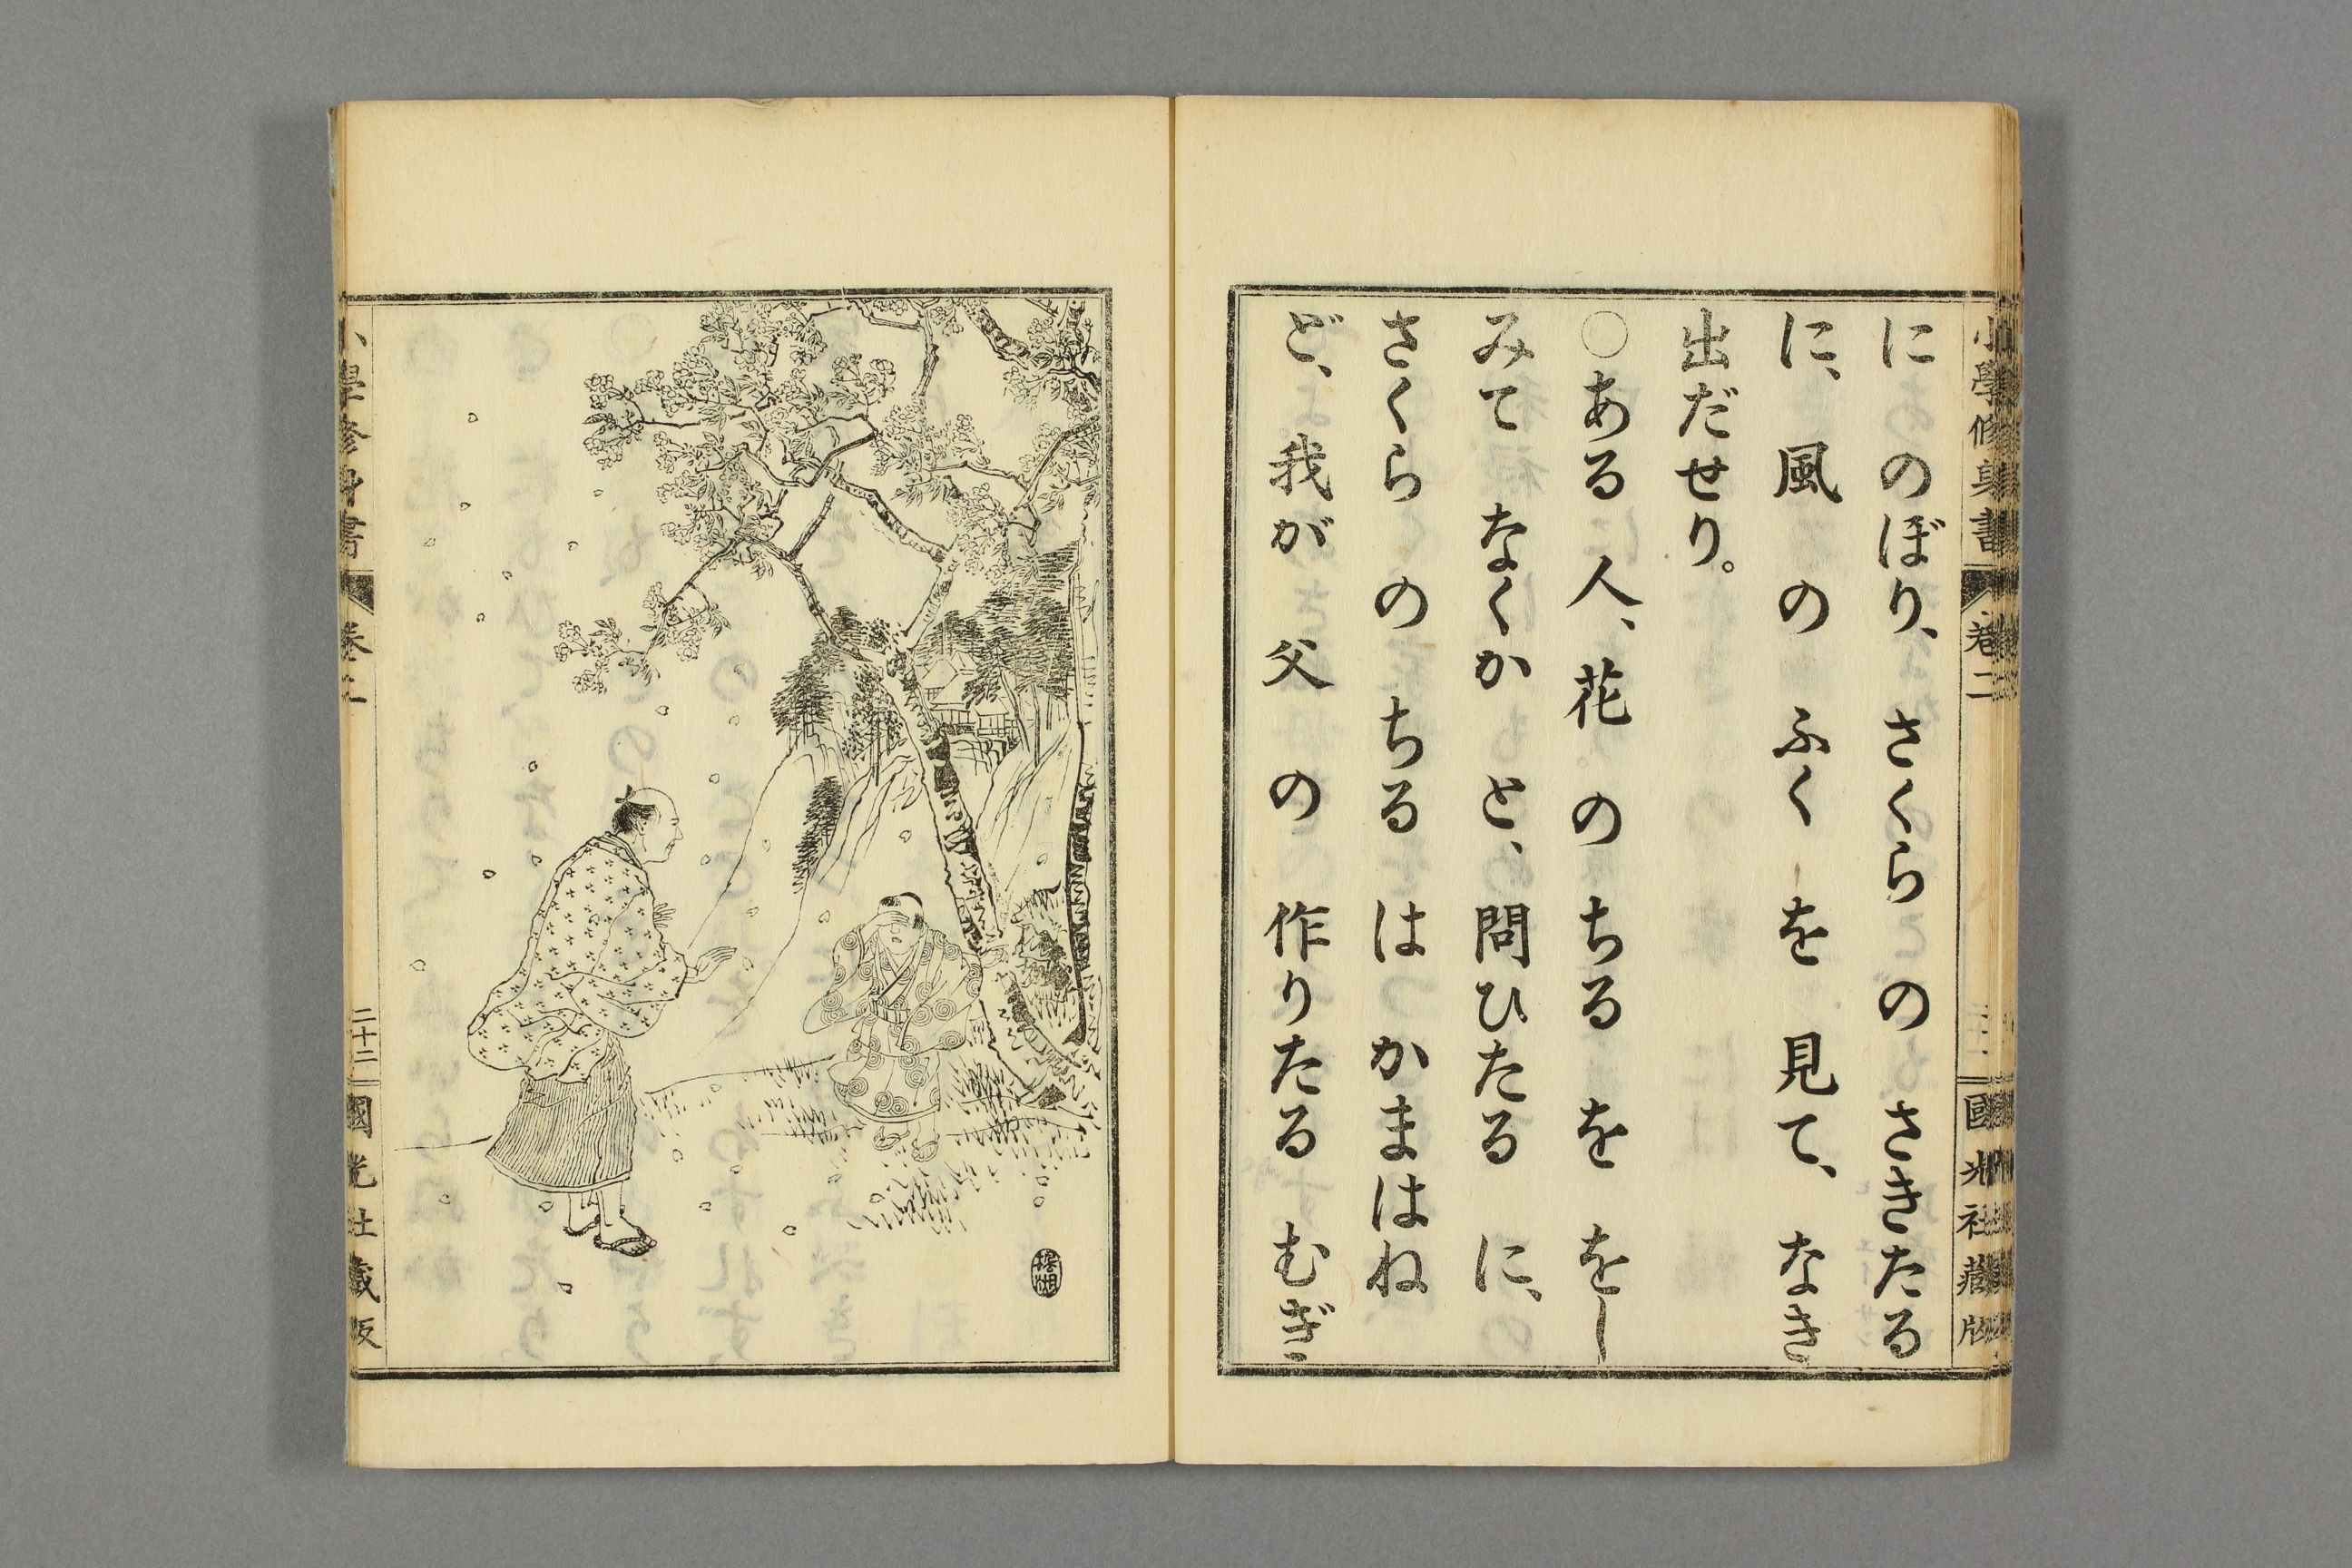 小學修身書 卷二 國光社藏版
に のぼり、 さくら の さきたる
に、 風 の ふく を 見て、 なき
出だせり。
○ある 人、 花 の ちる を をし
みて なくか と、 問ひたる に、
さくら の ちる は かまはね
ど、 我が 父 の 作りたる むぎ
小學修身書 卷二 二十二 國光社藏版